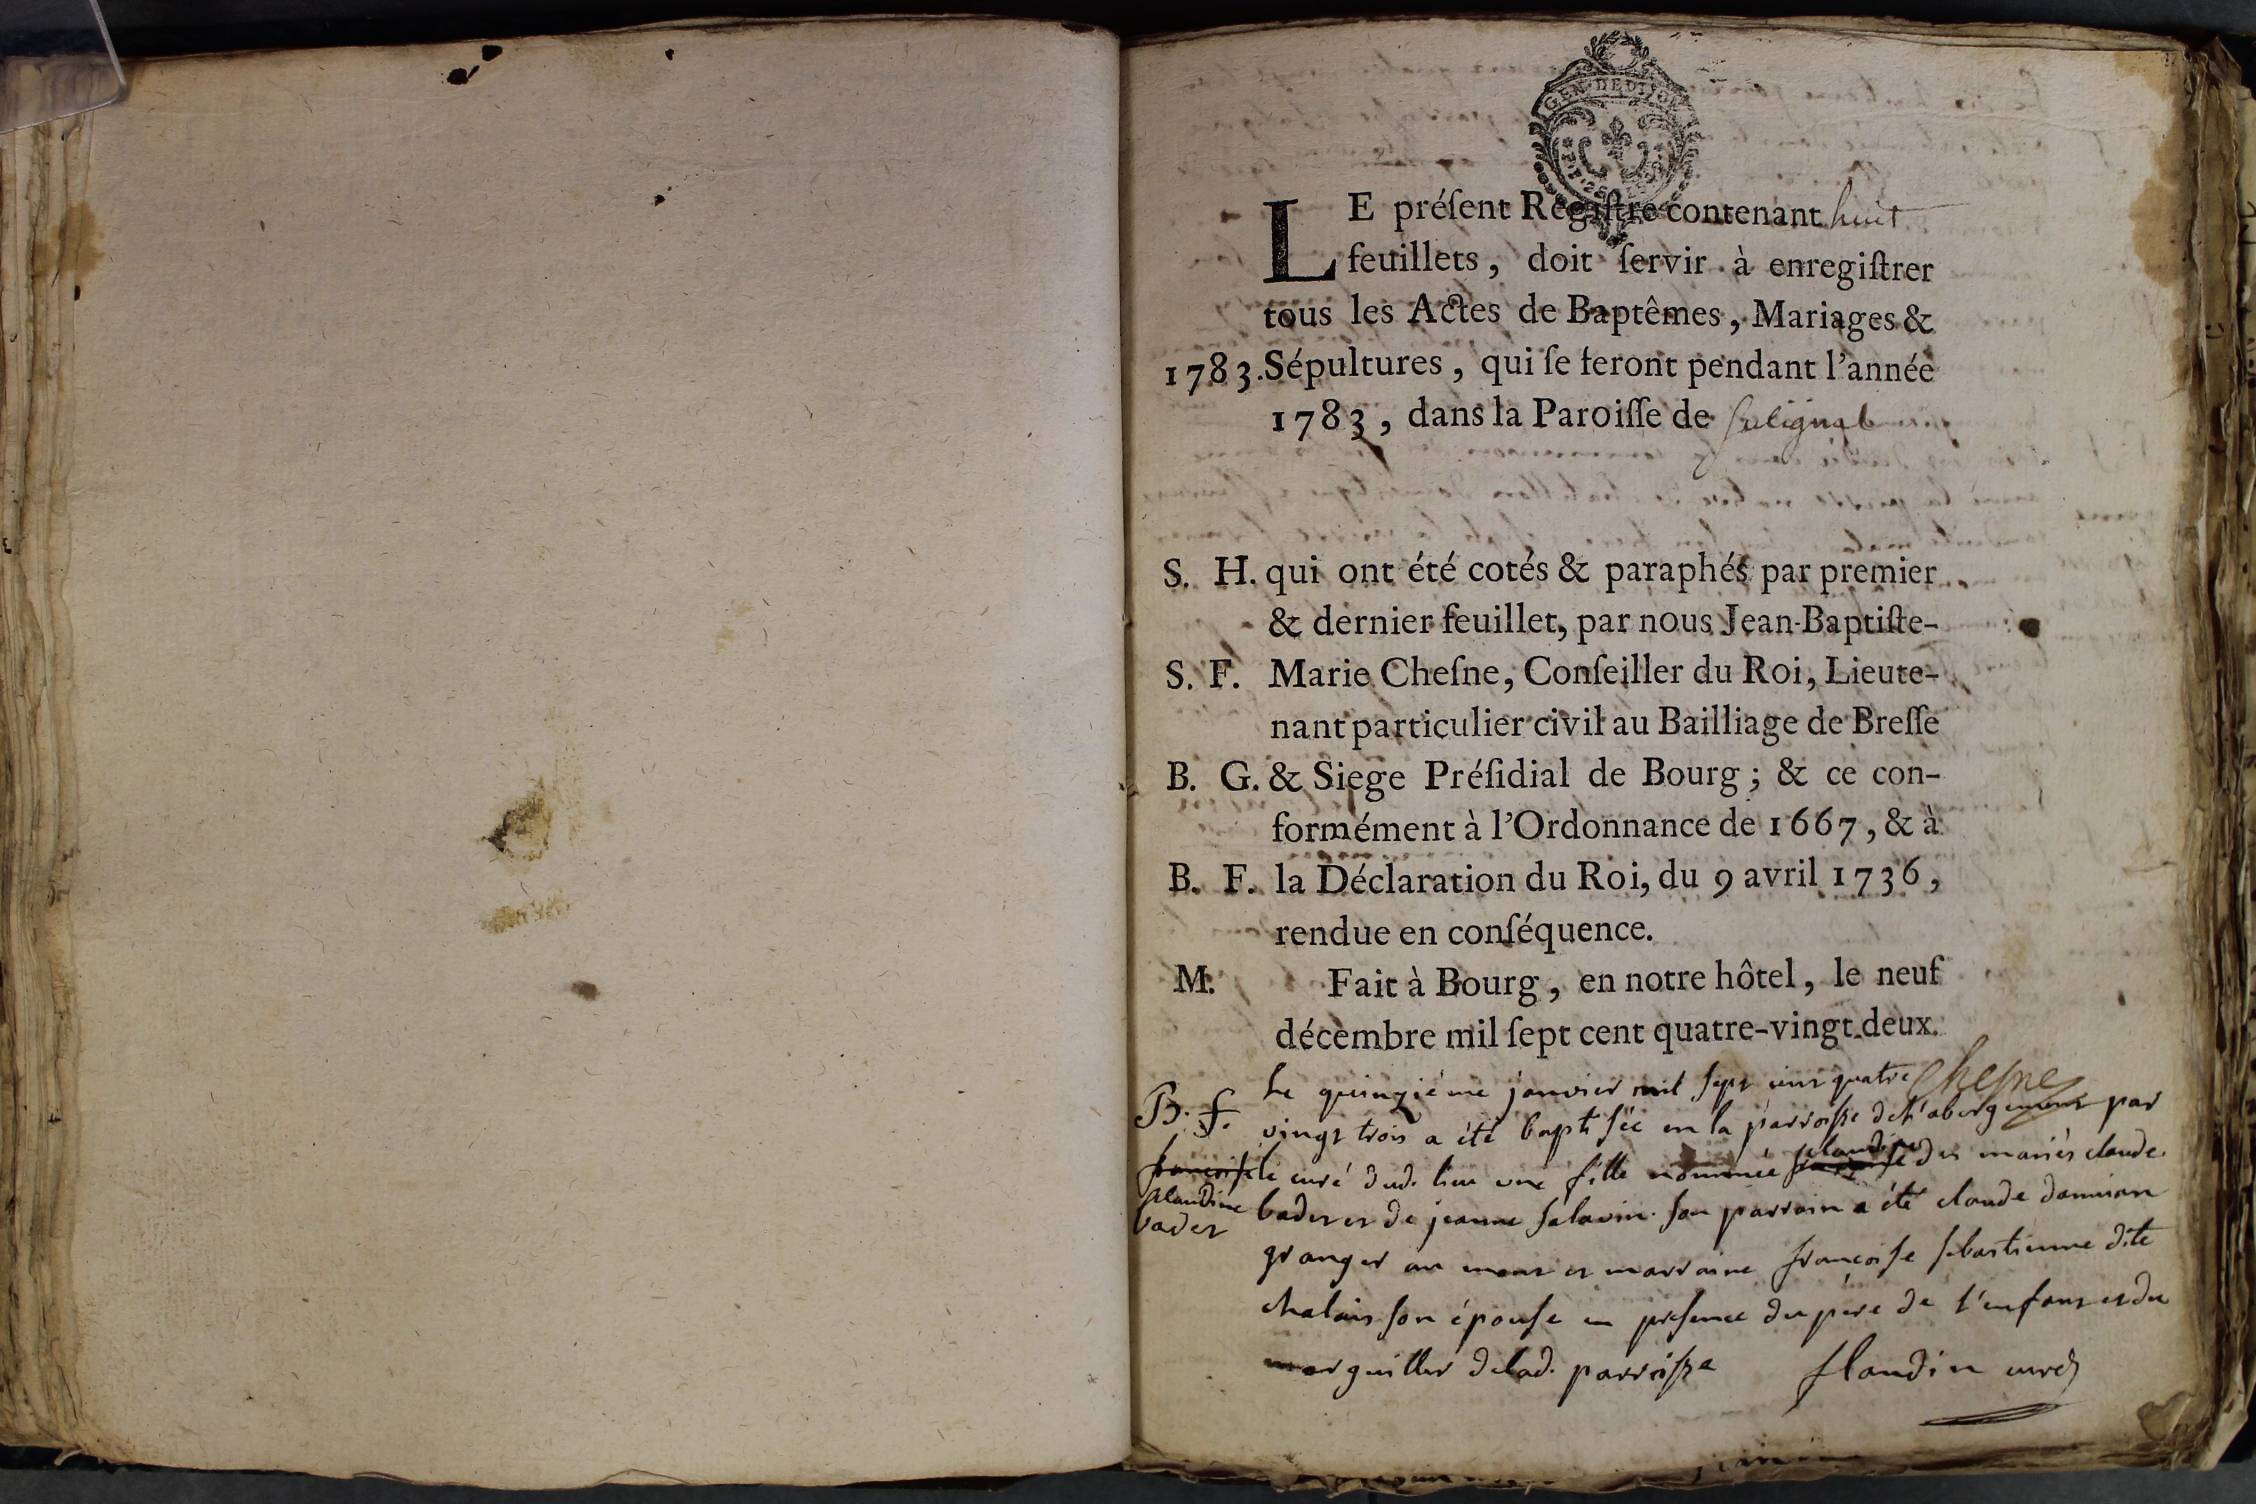 GEN. DE DIJON
LE préſent Regiſtre contenant huit
feuillets, doit ſervir à enregiſtrer
tous les Actes de Baptêmes, Mariages &
1783. Sépultures, qui ſe feront pendant l'année
1783, dans la Paroiſſe de
S. H. qui ont été cotés & paraphés par premier
& dernier feuillet, par nous Jean-Baptiſte-
S. F. Marie Cheſne, Conſeiller du Roi, Lieute-
nant particulier civil au Bailliage de Breſſe
B. G. & Siege Préſidial de Bourg; & ce con-
formément à l'Ordonnance de 1667, & à
B. F. la Déclaration du Roi, du 9 avril 1736,
rendue en conſéquence.
M. Fait à Bourg, en notre hôtel, le neuf
décembre mil ſept cent quatre-vingt-deux.
Cheſne
B. f.
françoiſe
claudine
badet
Le quinziéme janvier mil sept cent quatre
vingt trois a été baptiſée en la parroiſse de l'abergement par
le curé dud. lieu une fille nommée claudine des mariés claude
badet et de jeanne ſalavin. ſon parrain a été claude damian
granger au et marraine françoiſe ſebastienne dite
chalais ſon épouſe en préſence du pére de l'enfant et du
marguiller de lad. parroiſse flandin curé